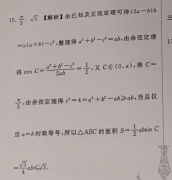 15. π/3 √3 【解析】由已知及正弦定理可得(2a-b)b
=a(a+b)-c²,整理得a²+b²-c²=ab,由余弦定理
得cos C=(a²+b²-c²)/(2ab)=1/2,又C∈(0,π),得C=
π/3,由余弦定理得c²=4=a²+b²-ab≥ab,当且仅
当a=b时取等号,所以△ABC的面积S=1/2absin C
=√3/4ab≤√3.